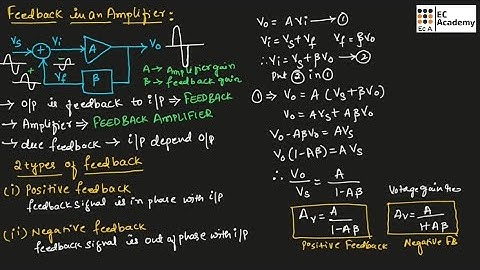 Feedback in an Amplifier:
Vs
Vi
A
Vo
+
+
Vf
β
A → Amplifier gain
β → feedback gain
→ o/p is feedback to i/p ⇒ FEEDBACK
→ Amplifier ⇒ FEEDBACK AMPLIFIER
→ due feedback → i/p depend o/p
2 types of feedback
(i) Positive feedback
feedback signal is in phase with i/p
(ii) Negative feedback
feedback signal is out of phase with i/p
Vo = A Vi → ①
Vi = Vs + Vf Vf = βVo
∴ Vi = Vs + βVo → ②
Put ② in ①
① ⇒ Vo = A (Vs + βVo)
Vo = AVs + AβVo
Vo - AβVo = AVs
Vo (1 - Aβ) = A Vs
∴ Vo / Vs = A / 1-Aβ
Av = A / 1-Aβ
Positive Feedback
Voltage gain
Av = A / 1+Aβ
Negative FB
EC
Academy
EC A